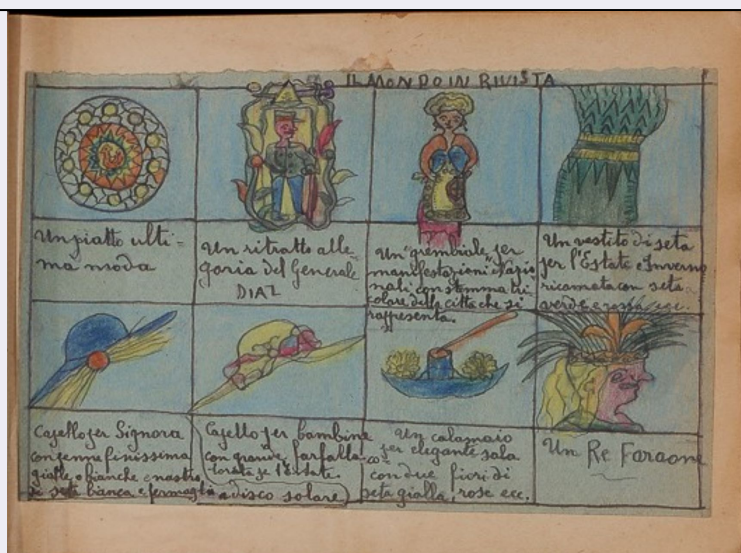 IL MONDO IN RIVISTA
Un piatto ulti-
ma moda
Un ritratto alle-
goria del Generale
DIAZ
Un "grembiale per
manifestazioni" Nazio
nali con stemma tri
colore della città che si
rappresenta.
Un vestito di seta
per l'Estate e Inverno
ricamata con seta
verde e rossa, ecc.
Capello per Signora
con penne finissima
gialle o bianche e nastro
di seta bianca e fermaglio
a disco solare
Capello per bambine
con grande farfalla
l'estate.
Un calamaio
per elegante sala
con due fiori di
seta gialla, rose ecc.
Un Re Faraone